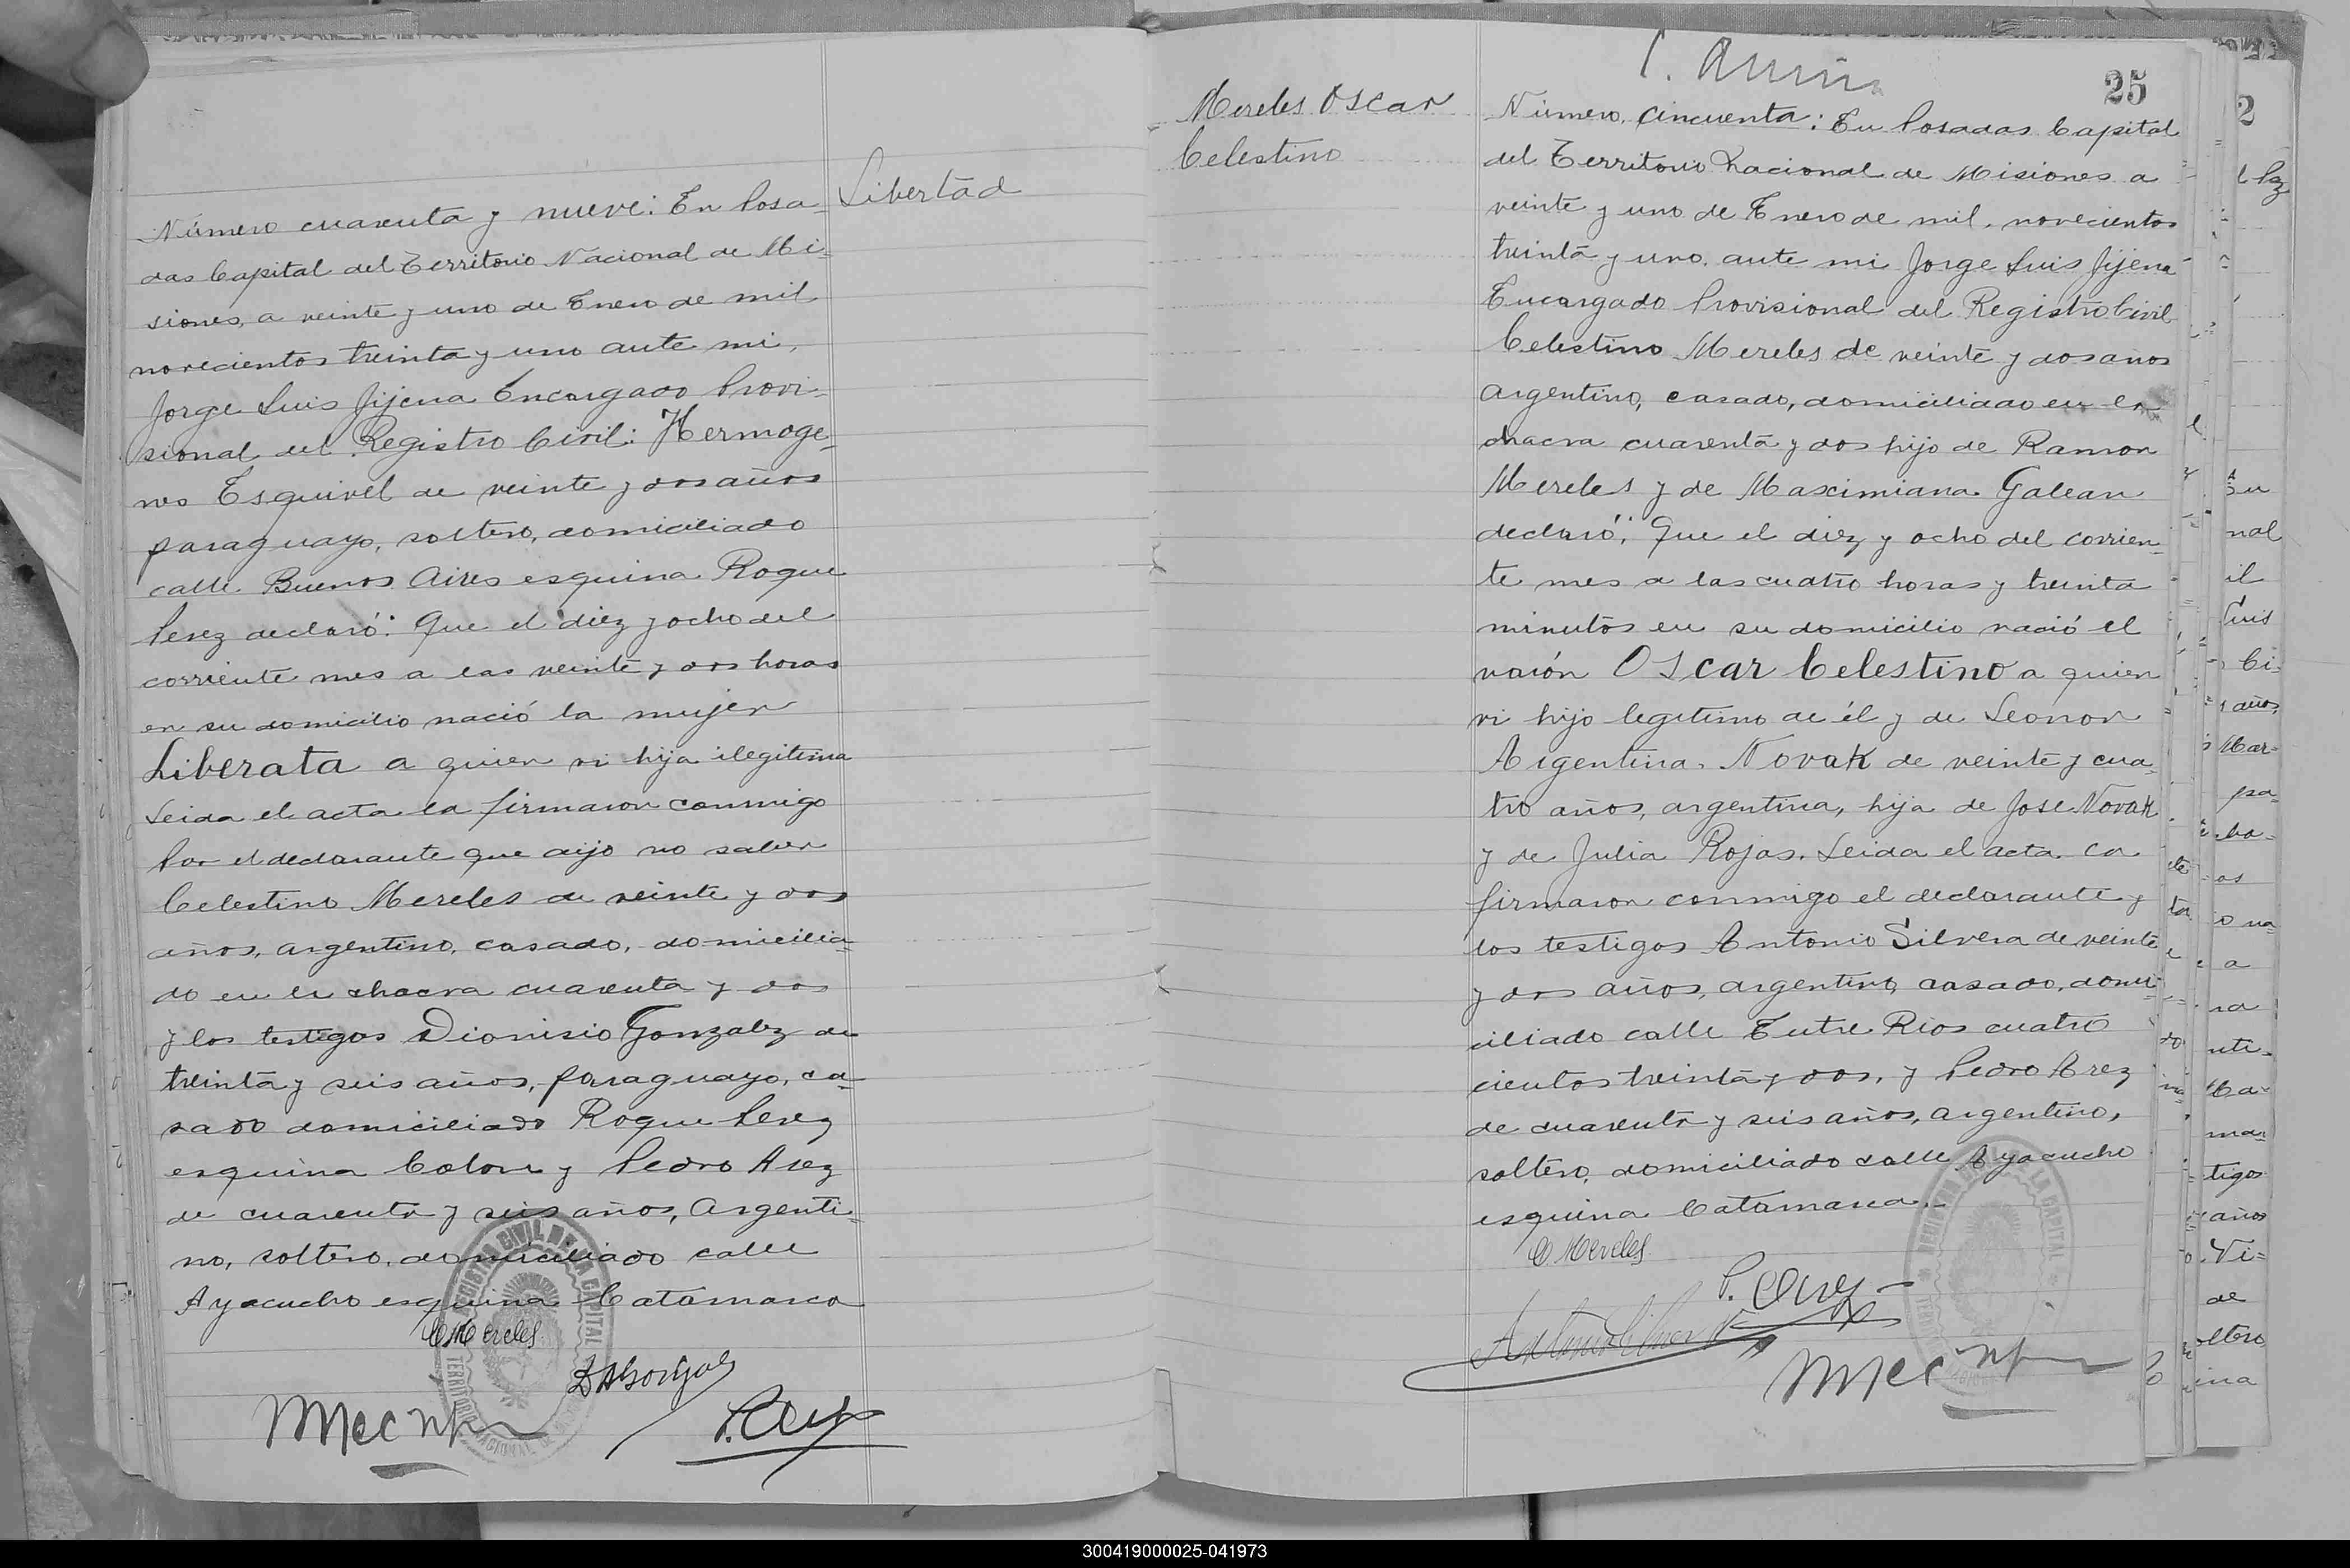 Libertad
Número cuarenta y nueve: En Posa-
das Capital del Territorio Nacional de Mi-
siones, a veinte y uno de Enero de mil
novecientos treinta y uno ante mi,
Jorge Luis Jijena Encargado Provi-
sional del Registro Civil: Hermoge-
nes Esquivel de veinte y dos años
paraguayo, soltero, domiciliado
calle Buenos Aires esquina Roque
Perez declaró: Que el diez y ocho del
corriente mes a las veinte y dos horas
en su domicilio nació la mujer
Liberata a quien vi hija ilegitima
Leida el acta la firmaron conmigo
Por el declarante que dijo no saber
Celestino Mereles de veinte y dos
años, argentino, casado, domicilia-
do en la chacra cuarenta y dos
y los testigos Dionisio Gonzalez de
treinta y seis años, paraguayo, ca-
sado domiciliado Roque Perez
esquina Colon y Pedro Arez
de cuarenta y seis años, Argenti-
no, soltero, domiciliado calle
Ayacucho esquina Catamarca
C Mereles
REGISTRO CIVIL DE LA CAPITAL
TERRITORIO NACIONAL DE
25
Mereles Oscar
Celestino
Número cincuenta: En Posadas Capital
del Territorio Nacional de Misiones a
veinte y uno de Enero de mil novecientos
treinta y uno, ante mi Jorge Luis Jijena
Encargado Provisional del Registro Civil
Celestino Mereles de veinte y dos años
argentino, casado, domiciliado en la
chacra cuarenta y dos hijo de Ramon
Mereles y de Maximiana Galean
declaró: Que el diez y ocho del corrien-
te mes a las cuatro horas y treinta
minutos en su domicilio nació el
varón Oscar Celestino a quien
vi hijo legitimo de él y de Leonor
Argentina Novak de veinte y cua-
tro años, argentina, hija de Jose Novak
y de Julia Rojas. Leida el acta la
firmaron conmigo el declarante y
los testigos Antonio Silvera de veinte
y dos años, argentino, casado, domi-
ciliado calle Entre Rios cuatro
cientos treinta y dos, y Pedro Arez
de cuarenta y seis años, argentino,
soltero, domiciliado calle Ayacucho
esquina Catamarca.
C Mereles
LA CAPITAL
2
nal
il
Luis
Ci-
años,
Mar-
pa-
os
a
na
tigos
años
Vi-
de
soltero
ina
300419000025-041973